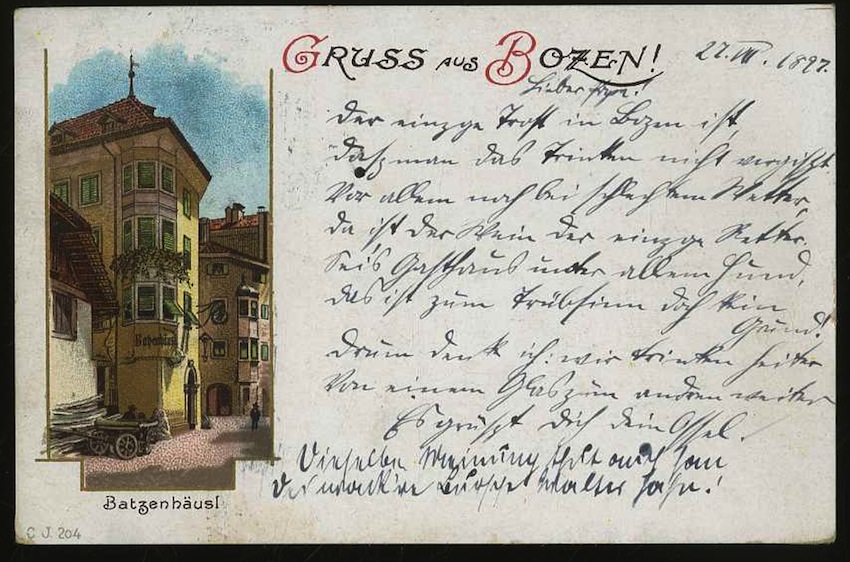 GRUSS AUS BOZEN!
27. VII. 1897.
Lieber
Der einzge Trost in Bozen ist,
Dasz man das Trinken nicht vergiszt.
Vor allem noch bei schlechtem Wetter,
da ist der Wein der einzge Retter.
Sei's Gasthaus unter allem Hund,
das ist zum Trübsinn doch kein
Grund!
Drum denk ich: wir trinken heiter
Von einem Glas zum andren weiter
Es grüszt Dich dein
Dieselbe Meinung theilt auch
Der wack're Bursche, Walter
Batzenhäusl
Batzenhäusl
C. J. 204